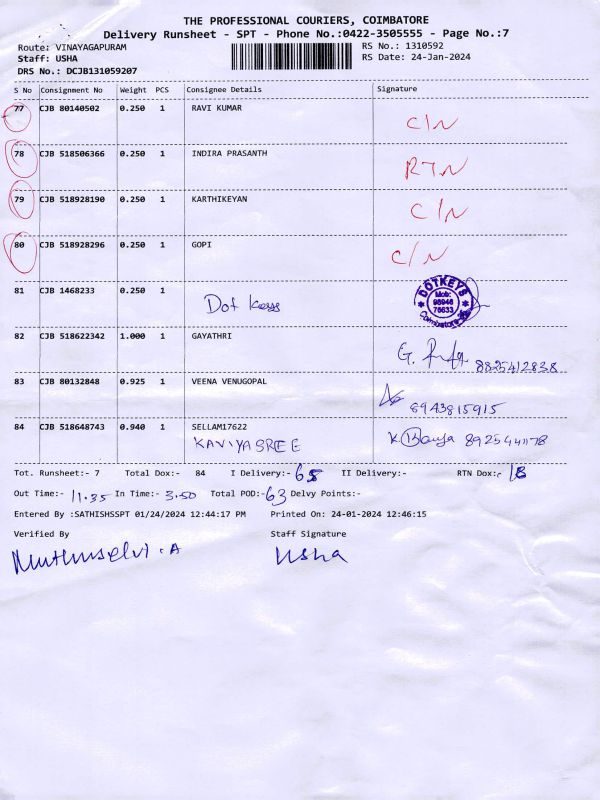 THE PROFESSIONAL COURIERS, COIMBATORE
Delivery Runsheet - SPT - Phone No.:0422-3505555 - Page No.:7
Route: VINAYAGAPURAM RS No.: 1310592
Staff: USHA RS Date: 24-Jan-2024
DRS No.: DCJB131059207
S No Consignment No Weight PCS Consignee Details Signature
77 CJB 80140502 0.250 1 RAVI KUMAR C/N
78 CJB 518506366 0.250 1 INDIRA PRASANTH RTN
79 CJB 518928190 0.250 1 KARTHIKEYAN C/N
80 CJB 518928296 0.250 1 GOPI C/N
81 CJB 1468233 0.250 1 Dot Keys DOTKEYS Mob: 98946 76633 Coimbatore
82 CJB 518622342 1.000 1 GAYATHRI G. 8825412838
83 CJB 80132848 0.925 1 VEENA VENUGOPAL 8943815915
84 CJB 518648743 0.940 1 SELLAM17622
KAVIYASREE K
Tot. Runsheet:- 7 Total Dox:- 84 I Delivery:- II Delivery:- RTN Dox:- 18
Out Time:- 11.35 In Time:- 3.50 Total POD:- 63 Delvy Points:-
Entered By :SATHISHSSPT 01/24/2024 12:44:17 PM Printed On: 24-01-2024 12:46:15
Verified By Staff Signature
Muthuselvi.A Usha